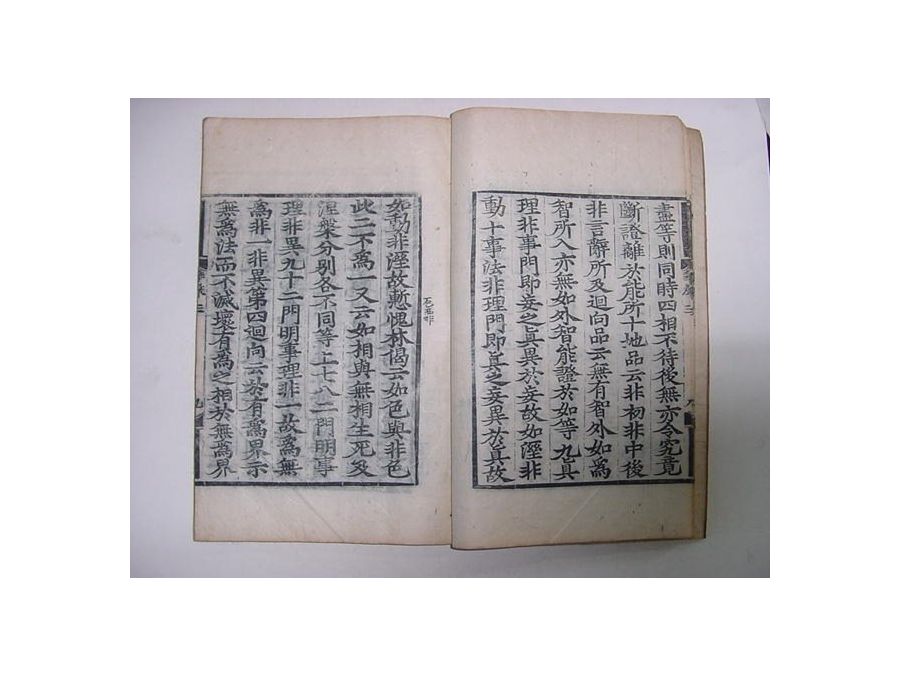 盡等則同時四相不待後無亦今究竟
斷證離於能所十地品云非初非中後
非言辭所及迴向品云無有智外如爲
智所入亦無如外智能證於如等九眞
理非事門即妄之眞異於妄故如溼非
動十事法非理門即眞之妄異於眞故
如動非溼故慙愧林偈云如色與非色
此二不爲一又云如相與無相生死及
涅槃分別各不同等上七八二門明事
理非異九十二門明事理非一故爲無
爲非一非異第四迴向云於有爲界示
無爲法而不滅壞有爲之相於無爲界